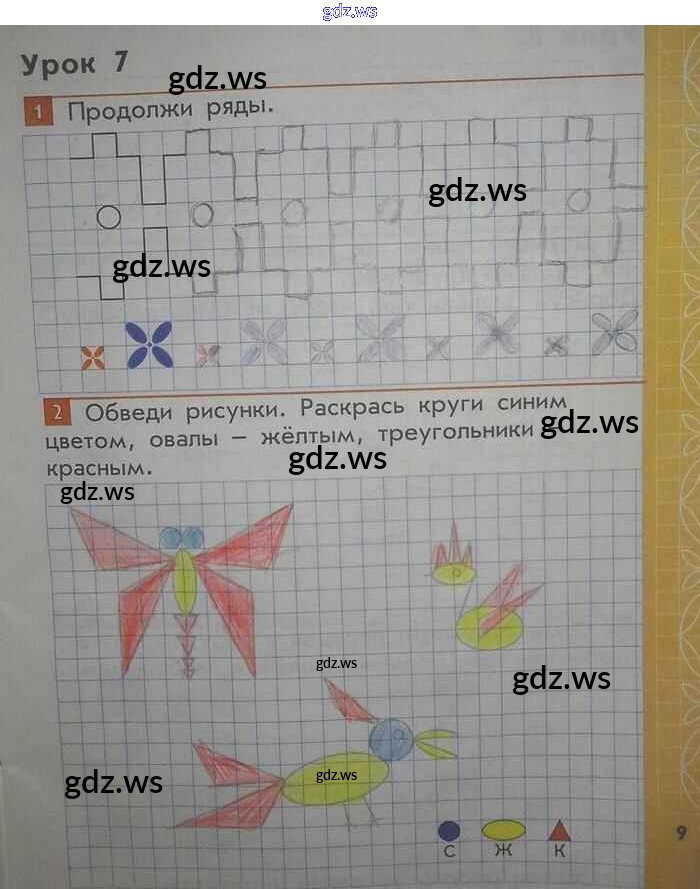 gdz.ws
Урок 7
gdz.ws
1 Продолжи ряды.
gdz.ws
gdz.ws
2 Обведи рисунки. Раскрась круги синим
цветом, овалы – жёлтым, треугольники
gdz.ws
красным.
gdz.ws
gdz.ws
gdz.ws
gdz.ws
gdz.ws
gdz.ws
С Ж К
9